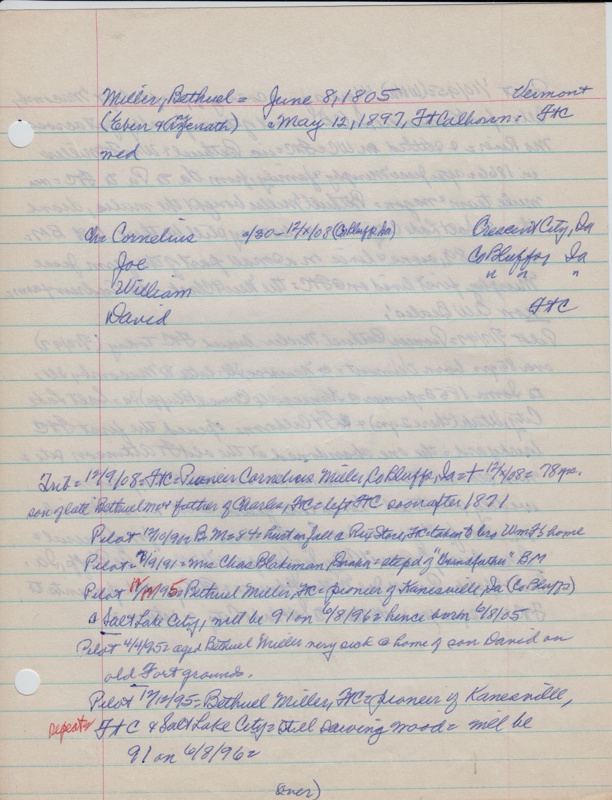 Miller, Bethuel = June 8, 1805 Vermont
(Eben & Asenath) = May 12, 1897, Ft Calhoun = FtC
med
Ch= Cornelius /30 - 12/4/08 (Co Bluffs, Ia) Crescent City, Ia
Joe Co Bluffs, Ia
William " " "
David FtC
Trib = 12/9/08 = FtC = Pioneer Cornelius Miller, Co Bluffs, Ia = + 12/4/08 = 78 yrs.
son of late Bethuel M & father of Charles, FtC = left FtC soon after 1871
Pilot B M = 84 = hurt in fall @ Store, FtC taken to bro Wm F's home
Pilot = /9/91 = Mrs Chas Blakeman, = step d of "Grandfather" BM
Pilot 12/12/95 = Bethuel Miller, FtC = pioneer of Kanesville, Ia (Co Bluffs)
& Salt Lake City, will be 91 on 6/8/96 = hence born 6/8/05
Pilot 4/4/95 = aged Bethuel Miller very sick @ home of son David on
old Fort grounds.
Pilot 12/12/95 = Bethuel Miller, FtC = pioneer of Kanesville,
repeat FtC & Salt Lake City = still sawing wood = will be
91 on 6/8/96 =
(over)